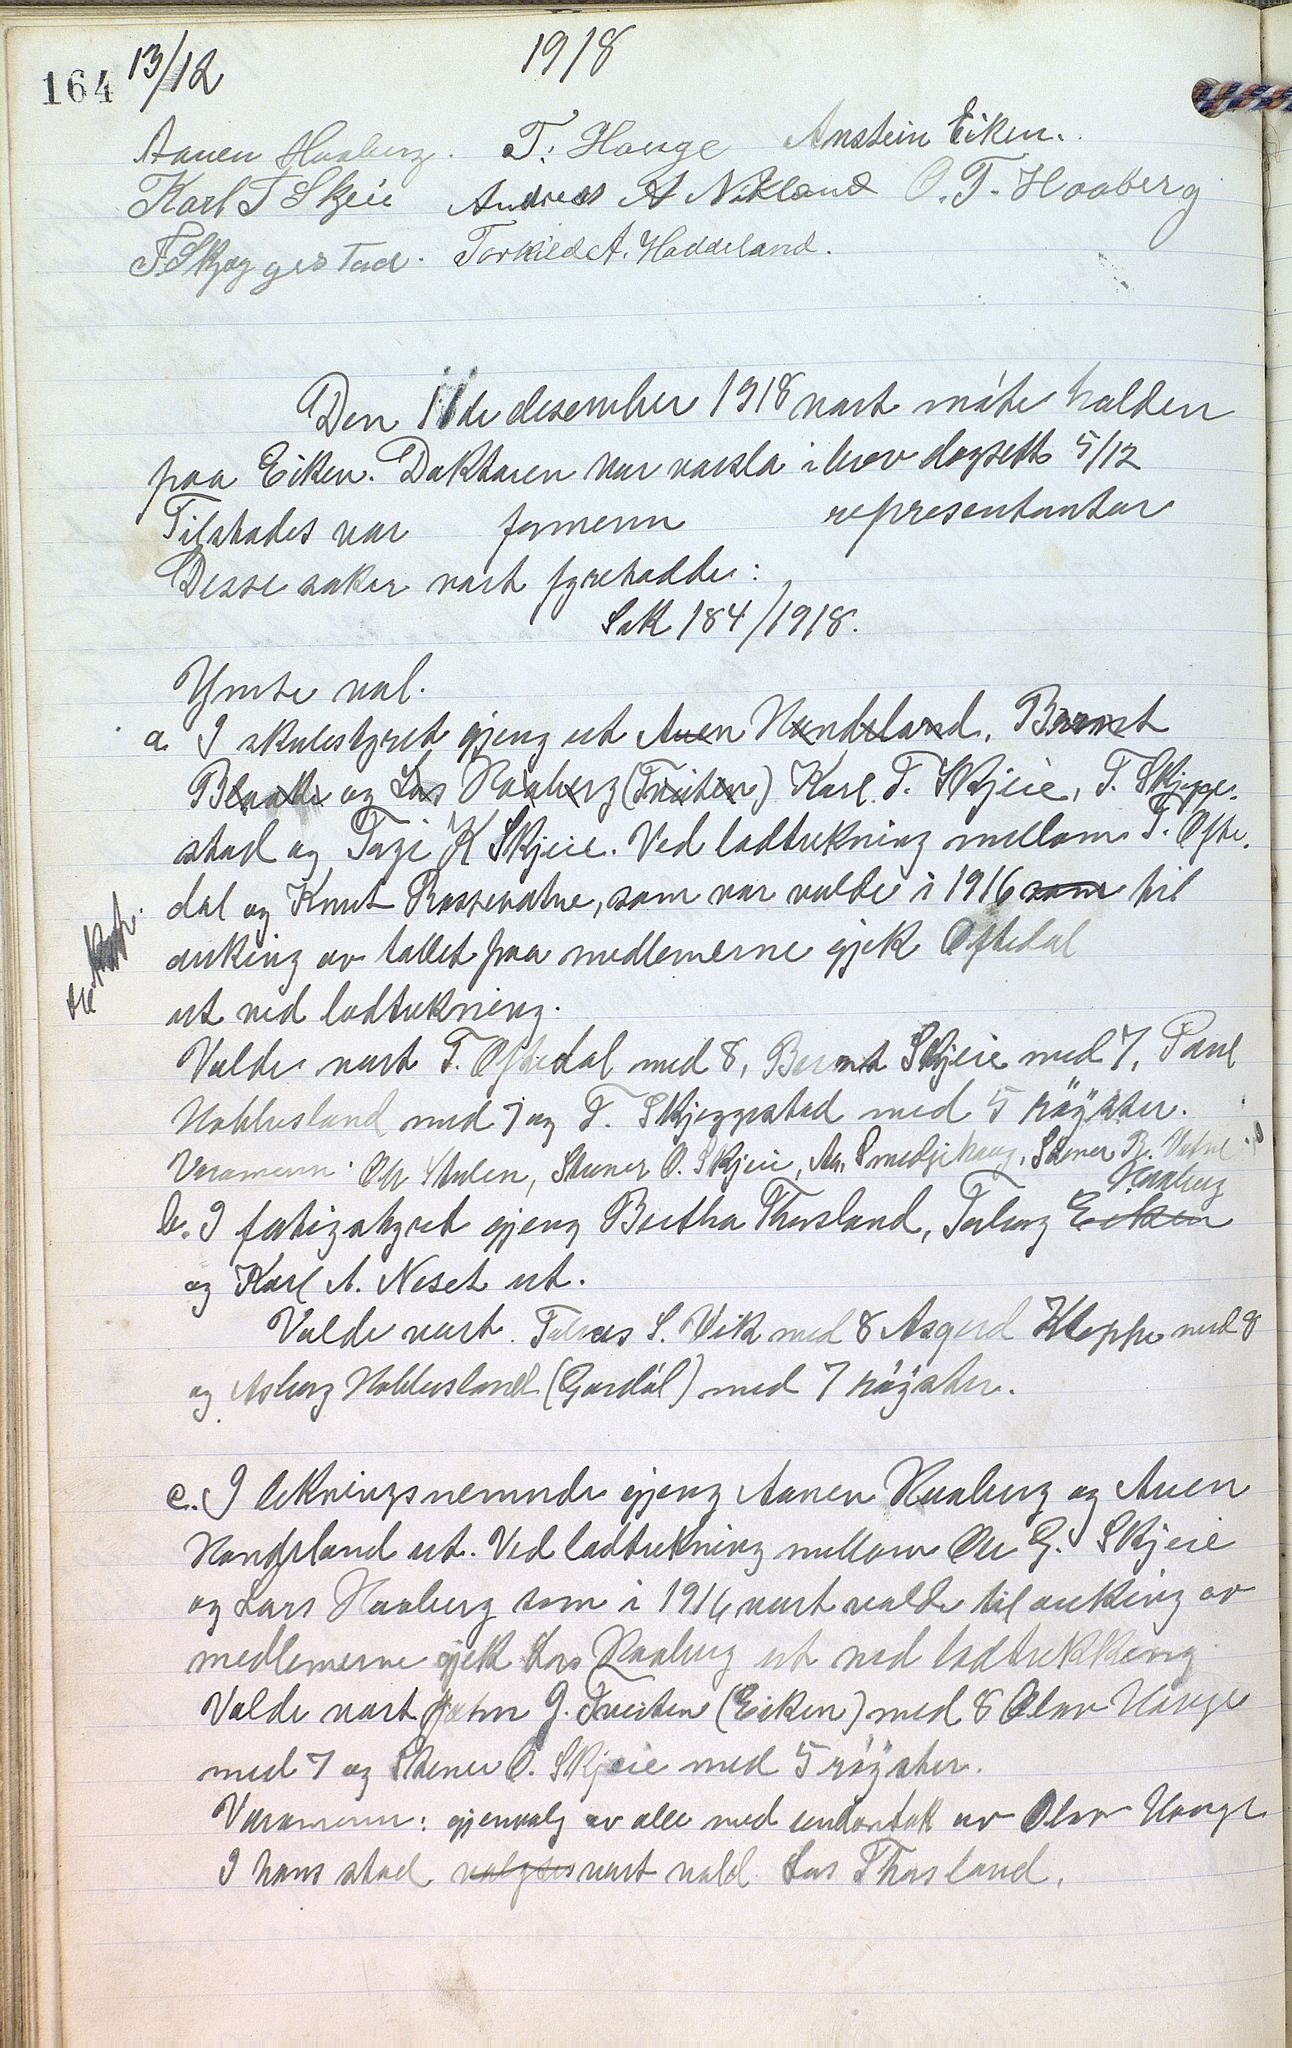 164 13/12 1918
Aanen Haaberg. T. Hauge Anstein Eiken.
Karl T Skjeie Andreas A Nikland O. T. Haaberg
T Skjeggestad. Torkild A. Haddeland.
Den 11de desember 1918 vart møte halden
paa Eiken. Doktaren var varsla i brev dagsett 5/12
Tilstades var formenn representantar
Desse saker vart fyrehadde:
Sak 184/1918.
Ymse val.
a. I skulestyret gjeng ut Auen Hundsland, Bernt
Blaali og Lars Haaberg (Tveiten) Karl T. Skjeie, T. Skjegge-
stad og Terje K Skjeie. Ved lodtrekning mellom T. Ofte-
dal og Knut Rossevatne, som var valde i 1916 som til
auking av tallet paa medlemerne gjek Oftedal
ut ved lodtrekning.
Valde vart T. Oftedal med 8, Bernt Skjeie med 7, Paul
Hobbesland med 7 og T. Skjeggestad med 5 røyster.
Varamenn: Ole Stulen, Stener O. Skjeie, Aa. Smedjehaug, Stener B. Vatne
Haaberg
b. I fatigstyret gjeng Bertha Thorsland, Torborg Eiken
og Karl A. Neset ut.
Valde vart Tobias S. Vik med 8 Asgerd Kloppe med 8
og Asborg Hobbesland (Gardål) med 7 røyster.
c. I likningsnemnde gjeng Aanen Haaberg og Auen
Hundsland ut. Ved lodtrekning mellom Ole G. Skjeie
og Lars Haaberg som i 1916 vart valde til auking av
medlemerne gjek Lars Haaberg ut ved lodtrekking
Valde vart G. Tveiten (Eiken) med 8 Olav Hauge
med 7 og Stener O. Skjeie med 5 røyster.
Varamenn: gjenvalg av alle med undantak av Olav Hauge
I hans stad valgtes vart vald Lars Thorsland.